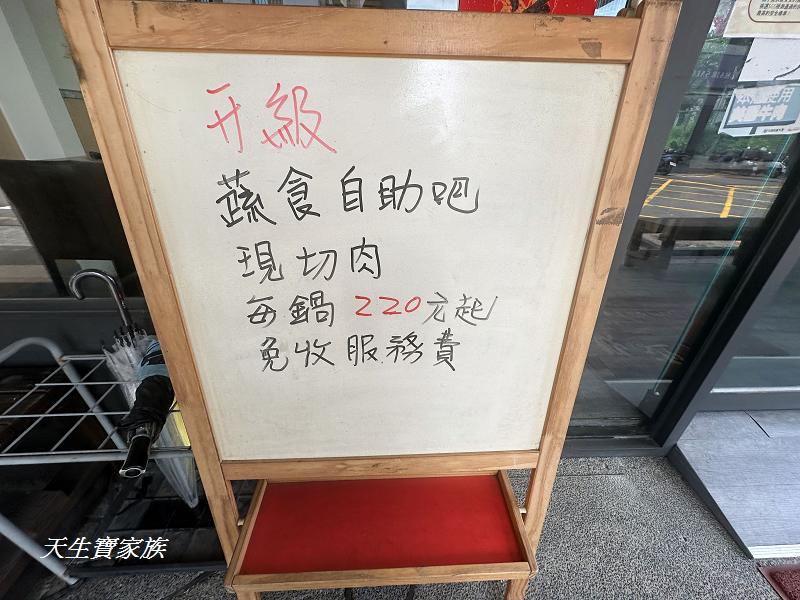 升級
蔬食自助吧
現切肉
每鍋220元起
免收服務費
天生寶家族